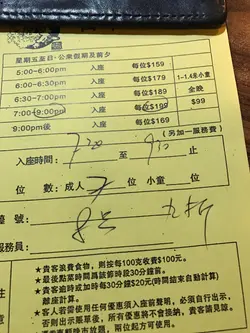 星期五至日、公眾假期及前夕
5:00-6:00pm 入座 每位$159
6:00-6:30pm 入座 每位$179
6:30-7:00pm 入座 每位$189
7:00-9:00pm 入座 每位$199
9:00pm後 入座 每位$169
1-1.4米小童
全晚
$99
(另加一服務費)
入座時間: 7 20 至 9 止
位 數:成人 2 小童 位
檯號: 8号 九折
服務員:
★貴客浪費食物,則按每100克收費$100元。
★最後點菜時間爲該節時段30分鐘前。
★貴客逾時或爲每30分鐘$20元(時間結束自動計算)
離座計算。
★客人若需使用任何優惠須入座前聲明,必須自行出示,
否則出示賬單後,所有優惠將不會換納,貴客請見諒。